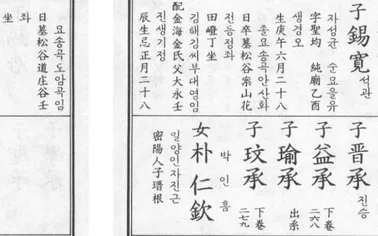 子錫寬 석관
자성균 순묘을유
字聖均 純廟乙酉
생경오
生庚午六月二十八
졸묘송곡안산화
日卒墓松谷案山花
전등정좌
田嶝丁坐
김해김씨부대영임
配金海金氏父大永壬
진생기정
辰生忌正月二十八
묘송곡도암곡임
日墓松谷道庄谷壬
좌
坐
子晋承 진승
子益承 下巻 二六八
子瑜承 出系
子玟承 下巻 二七九
박인흠
女朴仁欽
밀양인자진근
密陽人子瑨根